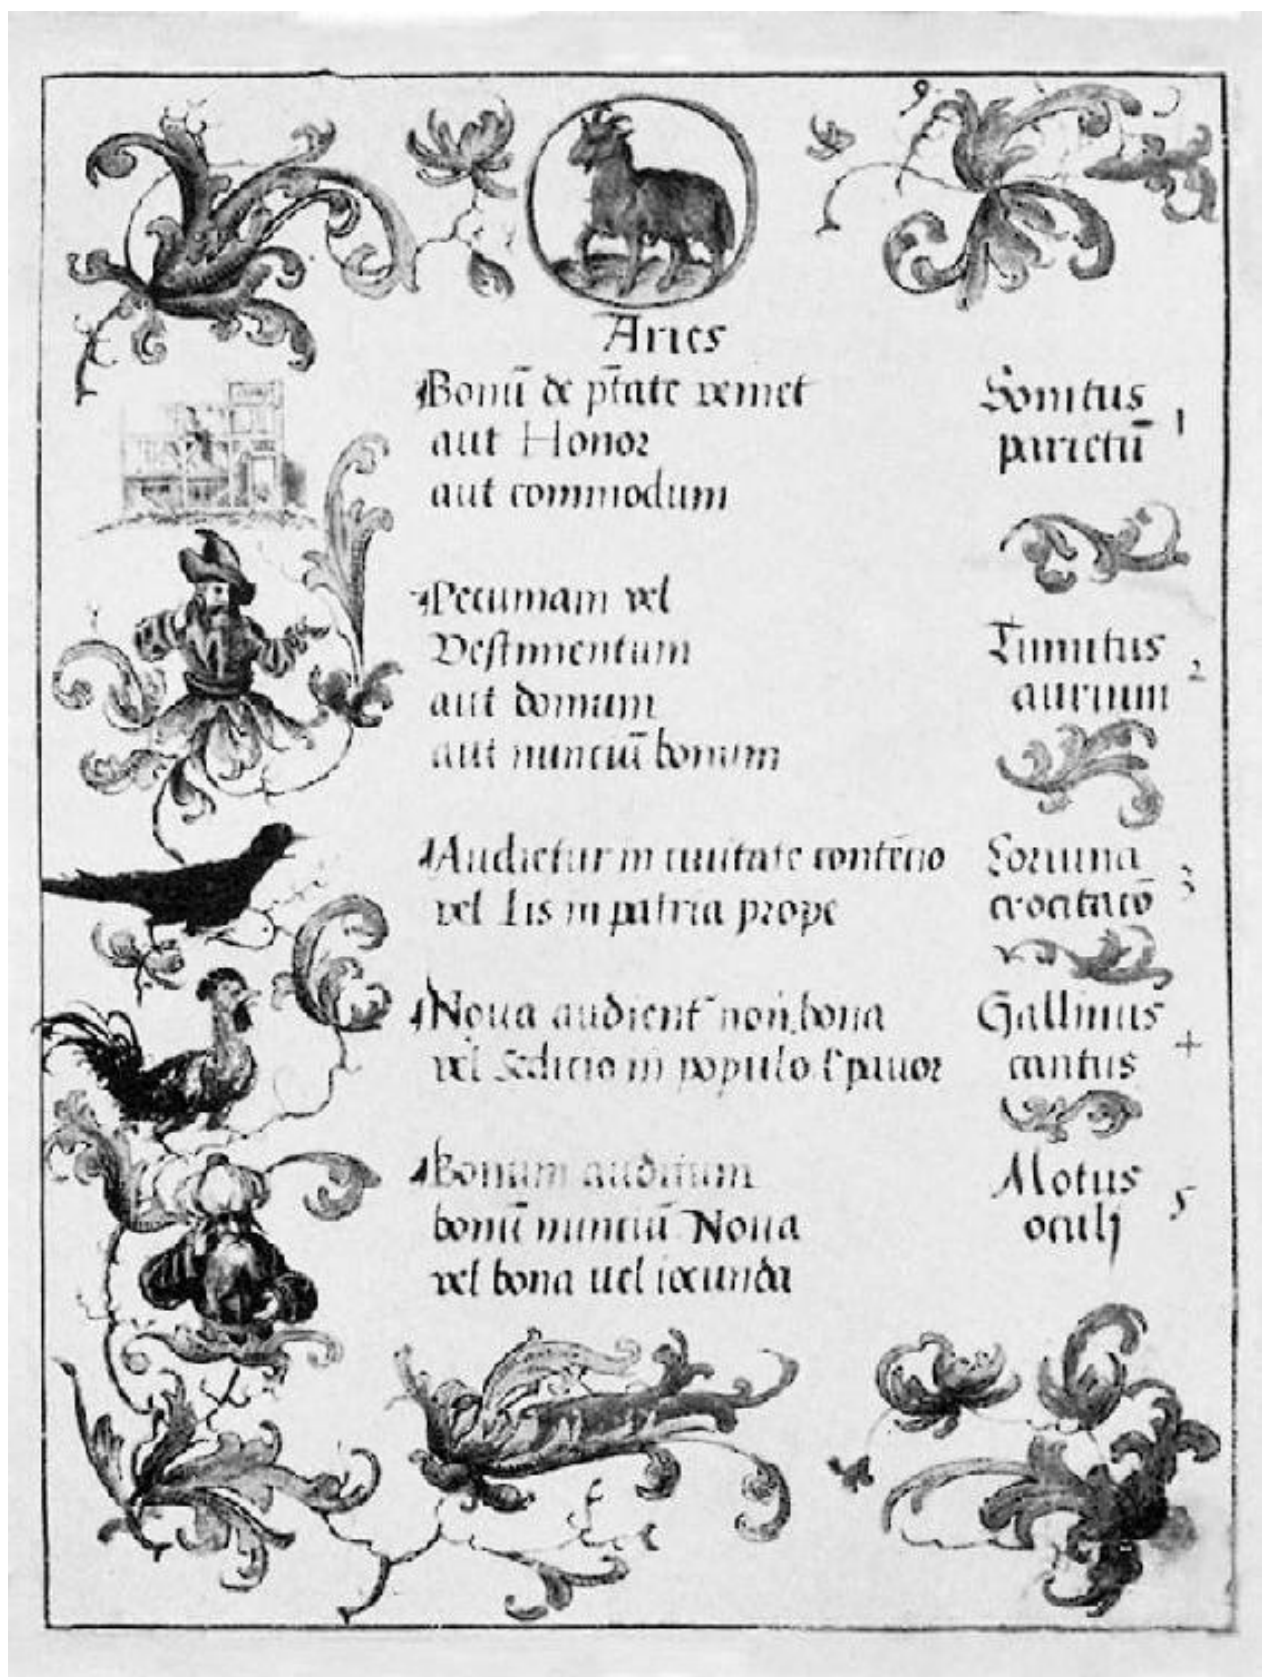 9.
Aries
Bonū de ptāte veniet
aut Honor
aut commodum
Sonitus
parietū
1
Pecuniam vel
Vestimentum
aut domum
aut nunciū bonum
Tinnitus
aurium
2
Audietur in ciuitate contēcio
vel Lis in patria prope
Coruina
crocitacō
3
Noua audient non bona
vel Sedicio in populo l' pauor
Gallinius
cantus
4
Bonum auditum
bonū nunciū Noua
vel bona uel iocunda
Motus
oculj
5